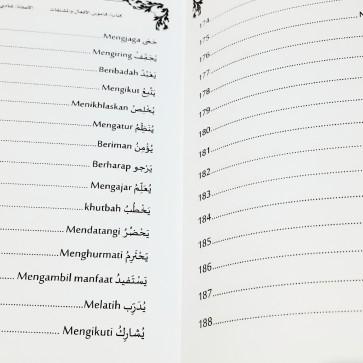 كتاب: قاموس الأفعال والمشتقات
حَمَى Mengjaga
Mengiring
يَعْبُدُ Beribadah
يَتْبَعُ Mengikut
يُخْلِصُ Menikhlaskan
يُنَظِّمُ Mengatur
يُؤْمِنُ Beriman
يَرْجو Berharap
يُعَلِّمُ Mengajar
يَخْطُبُ khutbah
يَحْضُرُ Mendatangi
يَحْتَرِمُ Menghurmati
يَسْتَفيدُ Mengambil manfaat
يُدَرِّب Melatih
يُشَارِكُ Mengikuti
174
175
176
177
178
179
180
181
182
183
184
185
186
187
188